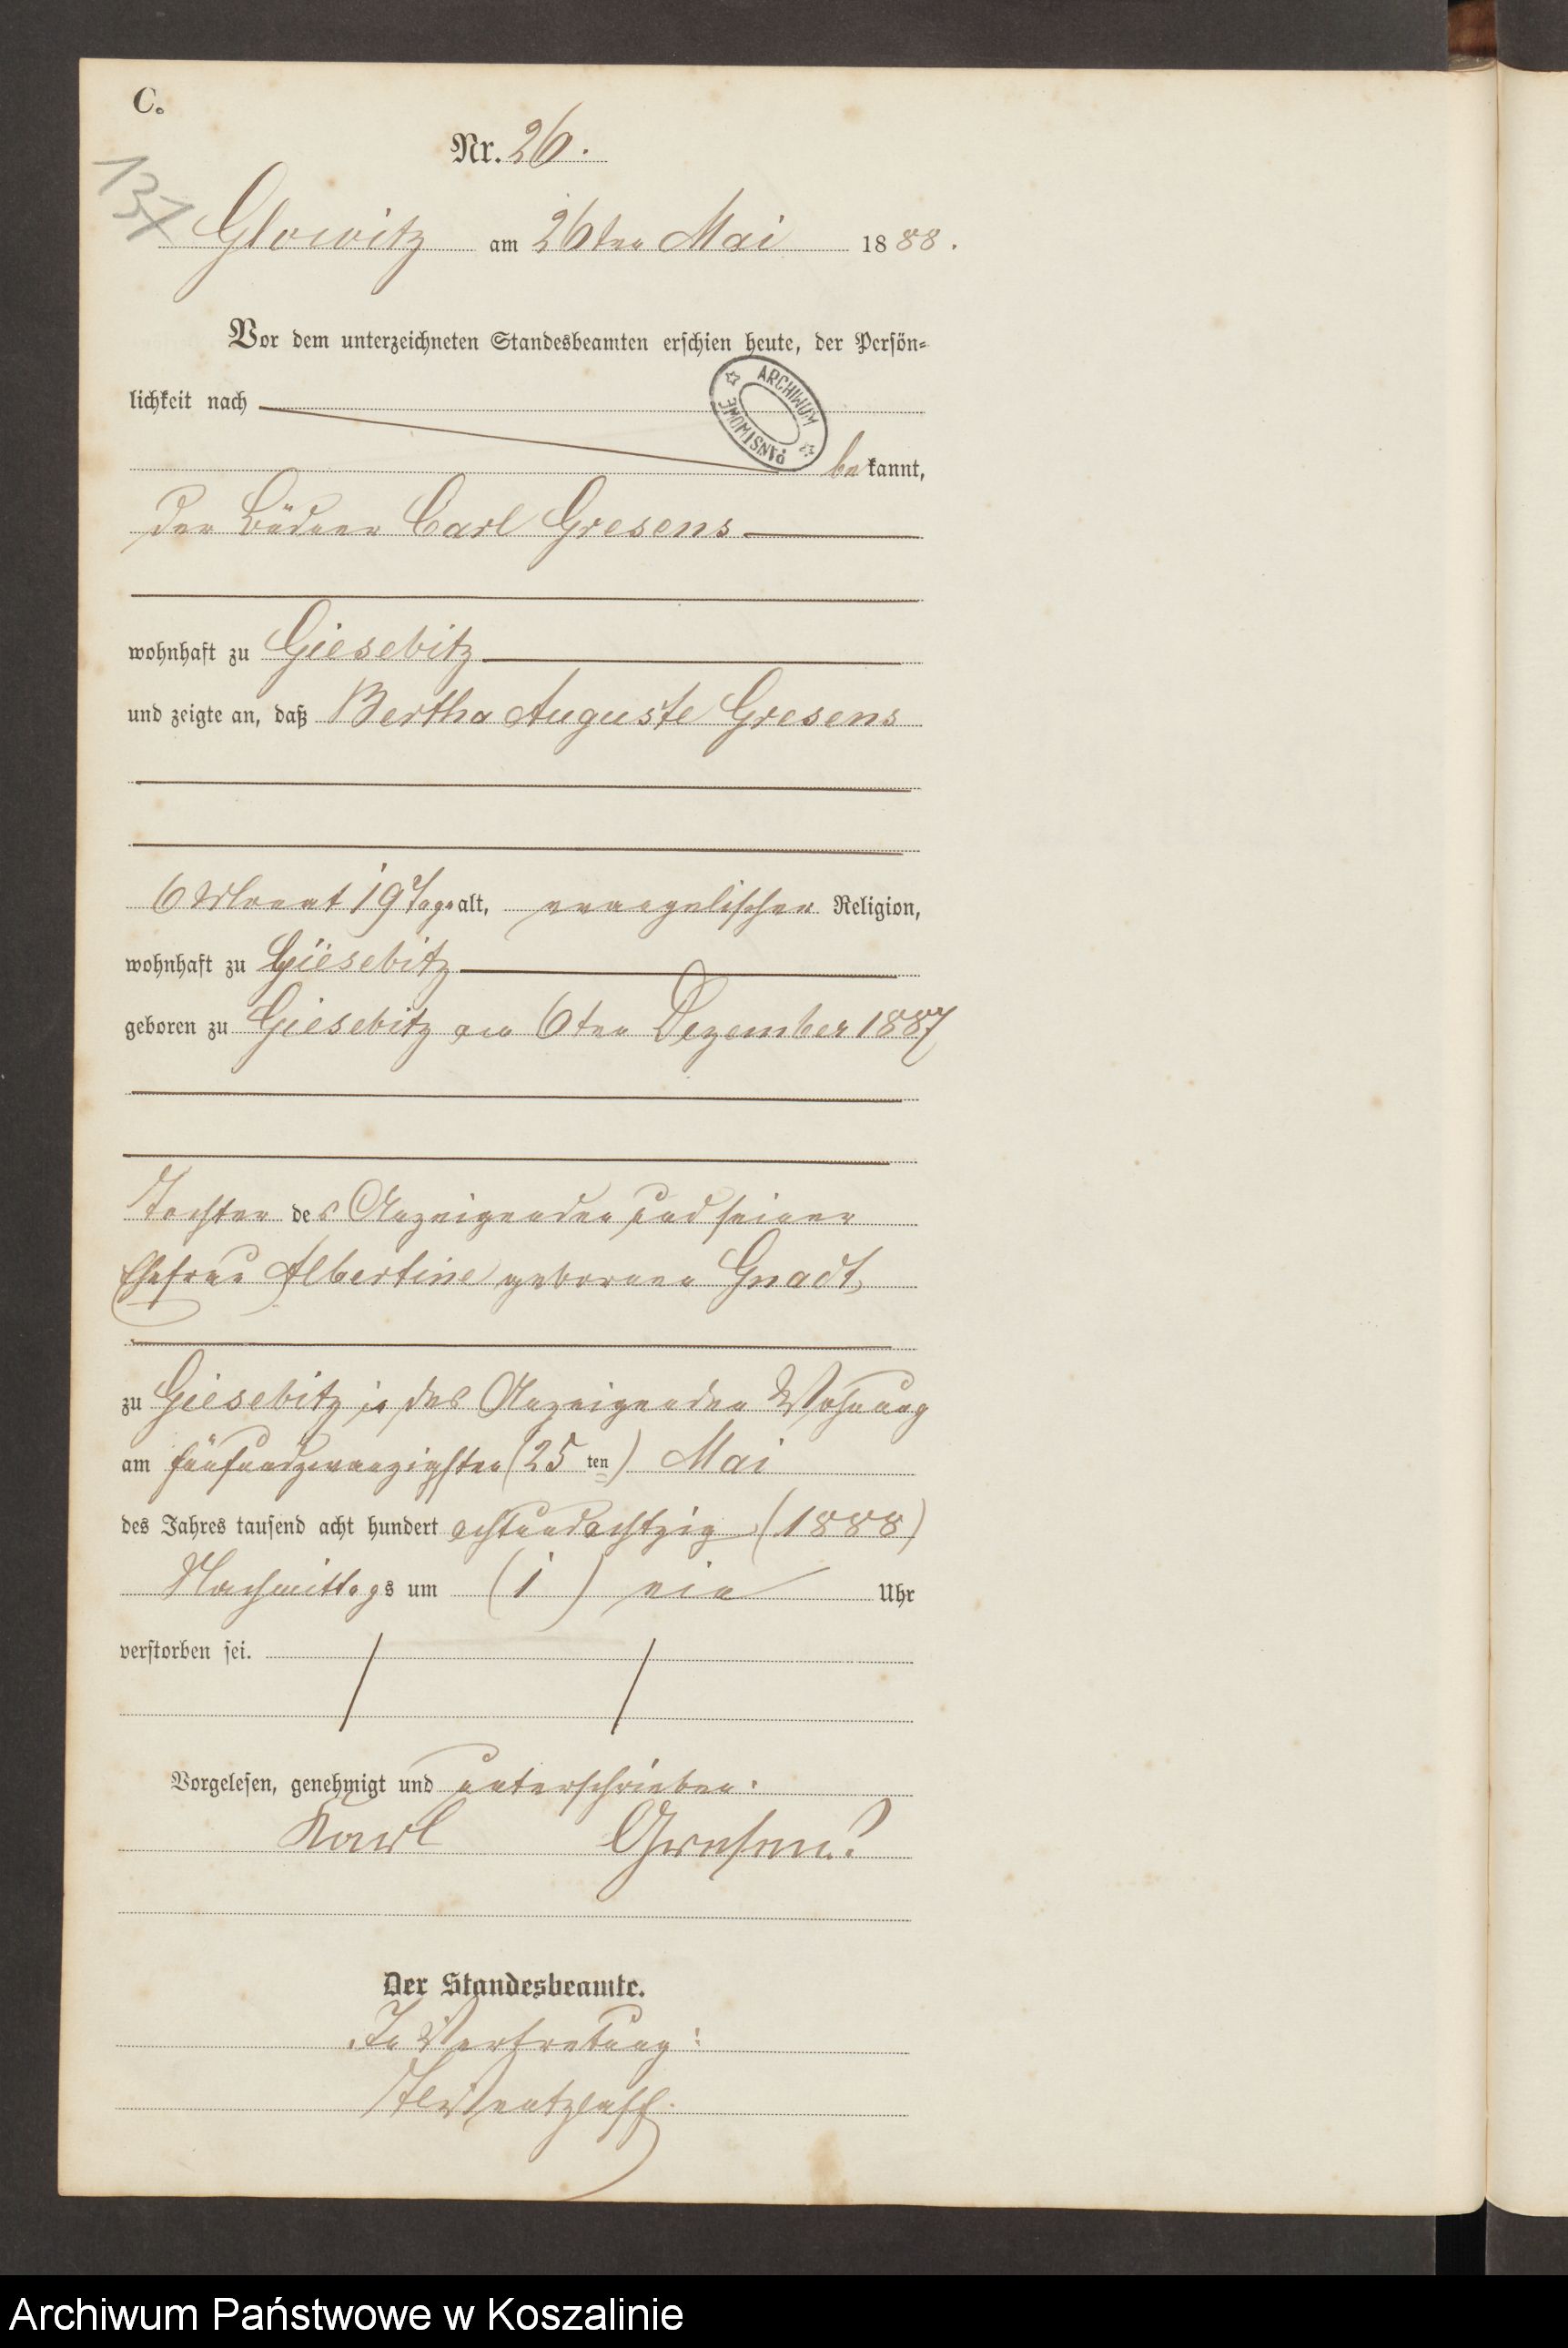 C.
Nr. 26.
137
Glowitz am 26ten Mai 1888.
Vor dem unterzeichneten Standesbeamten erschien heute, der Persön-
lichkeit nach
ARCHIWUM PAŃSTWOWE
bekannt,
der Büdner Carl Gresens
wohnhaft zu Giesebitz
und zeigte an, daß Bertha Auguste Gresens
6 Monat 19 Tage alt, evangelischer Religion,
wohnhaft zu Giesebitz
geboren zu Giesebitz am 6ten Dezember 1887
Tochter des Anzeigenden und seiner
Ehefrau Albertine geborene Gnadt,
zu Giesebitz in des Anzeigenden Wohnung
am fünfundzwanzigsten (25 ten) Mai
des Jahres tausend acht hundert achtundachtzig (1888)
Nachmittags um (1) ein Uhr
verstorben sei.
Vorgelesen, genehmigt und unterschrieben.
Karl Gresens
Der Standesbeamte.
In Vertretung:
Archiwum Państwowe w Koszalinie